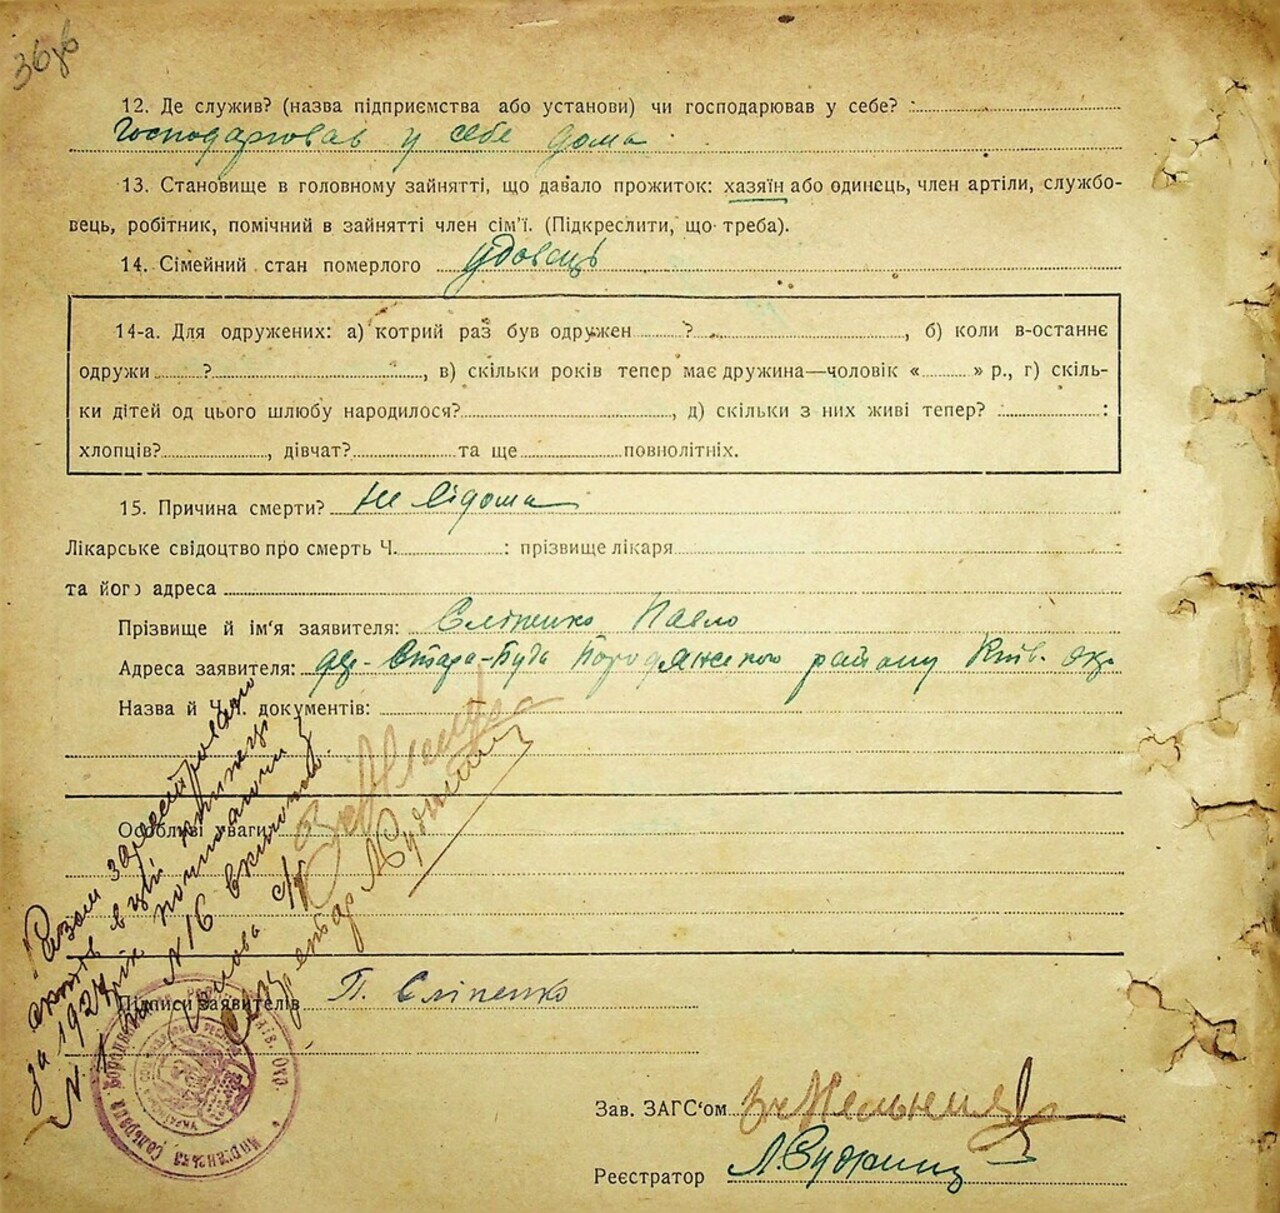 36зв
12. Де служив? (назва підприємства або установи) чи господарював у себе? :
Господарював у себе дома
13. Становище в головному зайнятті, що давало прожиток: хазяїн або одинець, член артіли, службо-
вець, робітник, помічний в зайнятті член сім'ї. (Підкреслити, що треба).
14. Сімейний стан померлого удовець
14-а. Для одружених: а) котрий раз був одружен ? , б) коли в-останнє
одружи ? , в) скільки років тепер має дружина—чоловік « » р., г) скіль-
ки дітей од цього шлюбу народилося? , д) скільки з них живі тепер? :
хлопців? , дівчат? та ще повнолітніх.
15. Причина смерти? Не відома
Лікарське свідоцтво про смерть Ч. : прізвище лікаря
та його адреса
Прізвище й ім'я заявителя: Сліпенко Павло
Адреса заявителя: Стара-Буда Бородянського району Київ. окр.
Назва й Ч.Ч. документів:
Особливі уваги
Разом зареєстровано
актів в цій книжці
за 1927 рік починаючи з
N 1 по N 16 включно
Голова с/р
Секретар
Підписи заявителів П. Сліпенко
Зав. ЗАГС'ом
Реєстратор